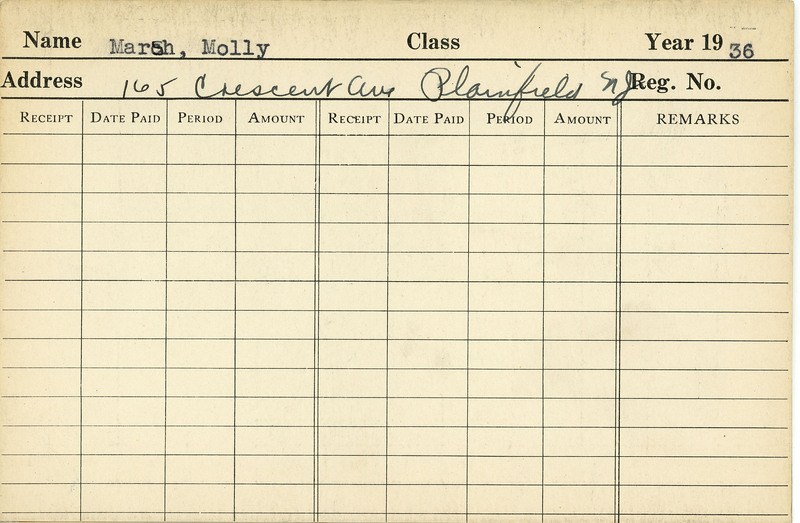 Name Marsh, Molly Class Year 19 36
Address 165 Crescent Ave Plainfield NJ Reg. No.
RECEIPT DATE PAID PERIOD AMOUNT RECEIPT DATE PAID PERIOD AMOUNT REMARKS